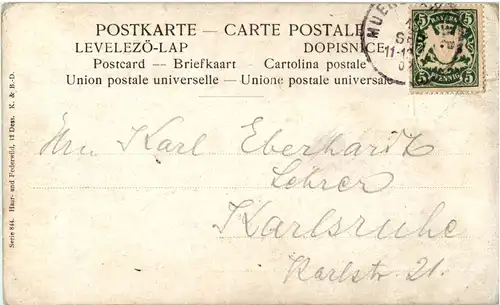 POSTKARTE – CARTE POSTALE
LEVELEZŐ-LAP DOPISNICE
Postcard –– Briefkaart – Cartolina postale
Union postale universelle – Unione postale universale
MUE
SE
11-12
BAYERN
5 5
PFENNIG
Hrn Karl Eberhardt
Lehrer
Karlsruhe
Karlstr. 21.
Serie 844. Haar- und Federwild, 12 Dess. K. & B.-D.